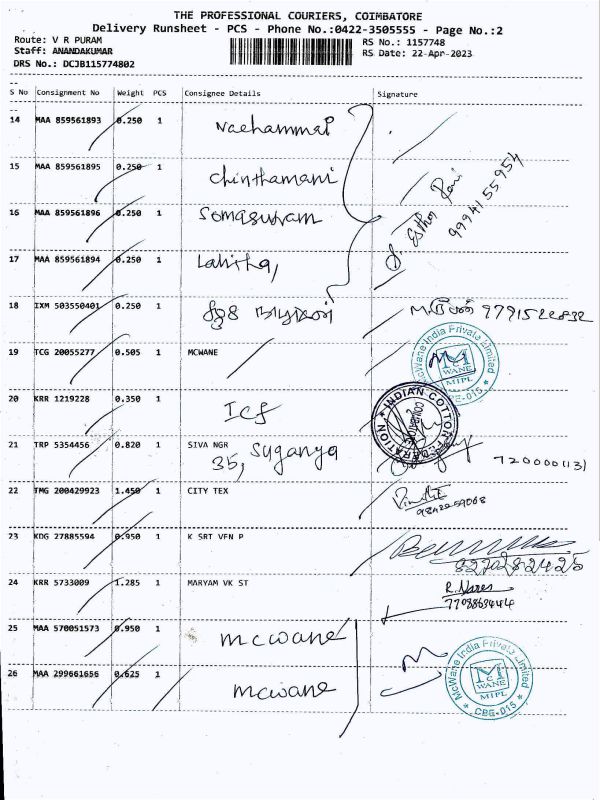 THE PROFESSIONAL COURIERS, COIMBATORE
Delivery Runsheet - PCS - Phone No.:0422-3505555 - Page No.:2
Route: V R PURAM
RS No.: 1157748
Staff: ANANDAKUMAR
RS Date: 22-Apr-2023
DRS No.: DCJB115774802
S No Consignment No Weight PCS Consignee Details Signature
14 MAA 859561893 0.250 1 Nachammai
15 MAA 859561895 0.250 1 Chinthamani
16 MAA 859561896 0.250 1 Somasundram
17 MAA 859561894 0.250 1 Lalitha,
9994155954
18 IXM 503550401 0.250 1
19 TCG 20055277 0.505 1 MCWANE
McWane India Private Limited
MC WANE MIPL
20 KRR 1219228 0.350 1 ICF
INDIAN COTTON FEDERATION
21 TRP 5354456 0.820 1 SIVA NGR
35, Suganya
22 TMG 200429923 1.450 1 CITY TEX
23 KDG 27885594 0.950 1 K SRT VFN P
8270282425
24 KRR 5733009 1.285 1 MARYAM VK ST
25 MAA 570051573 0.950 1 mcwane
26 MAA 299661656 0.625 1 mcwane
McWane India Private Limited
MC WANE MIPL
CBG-015